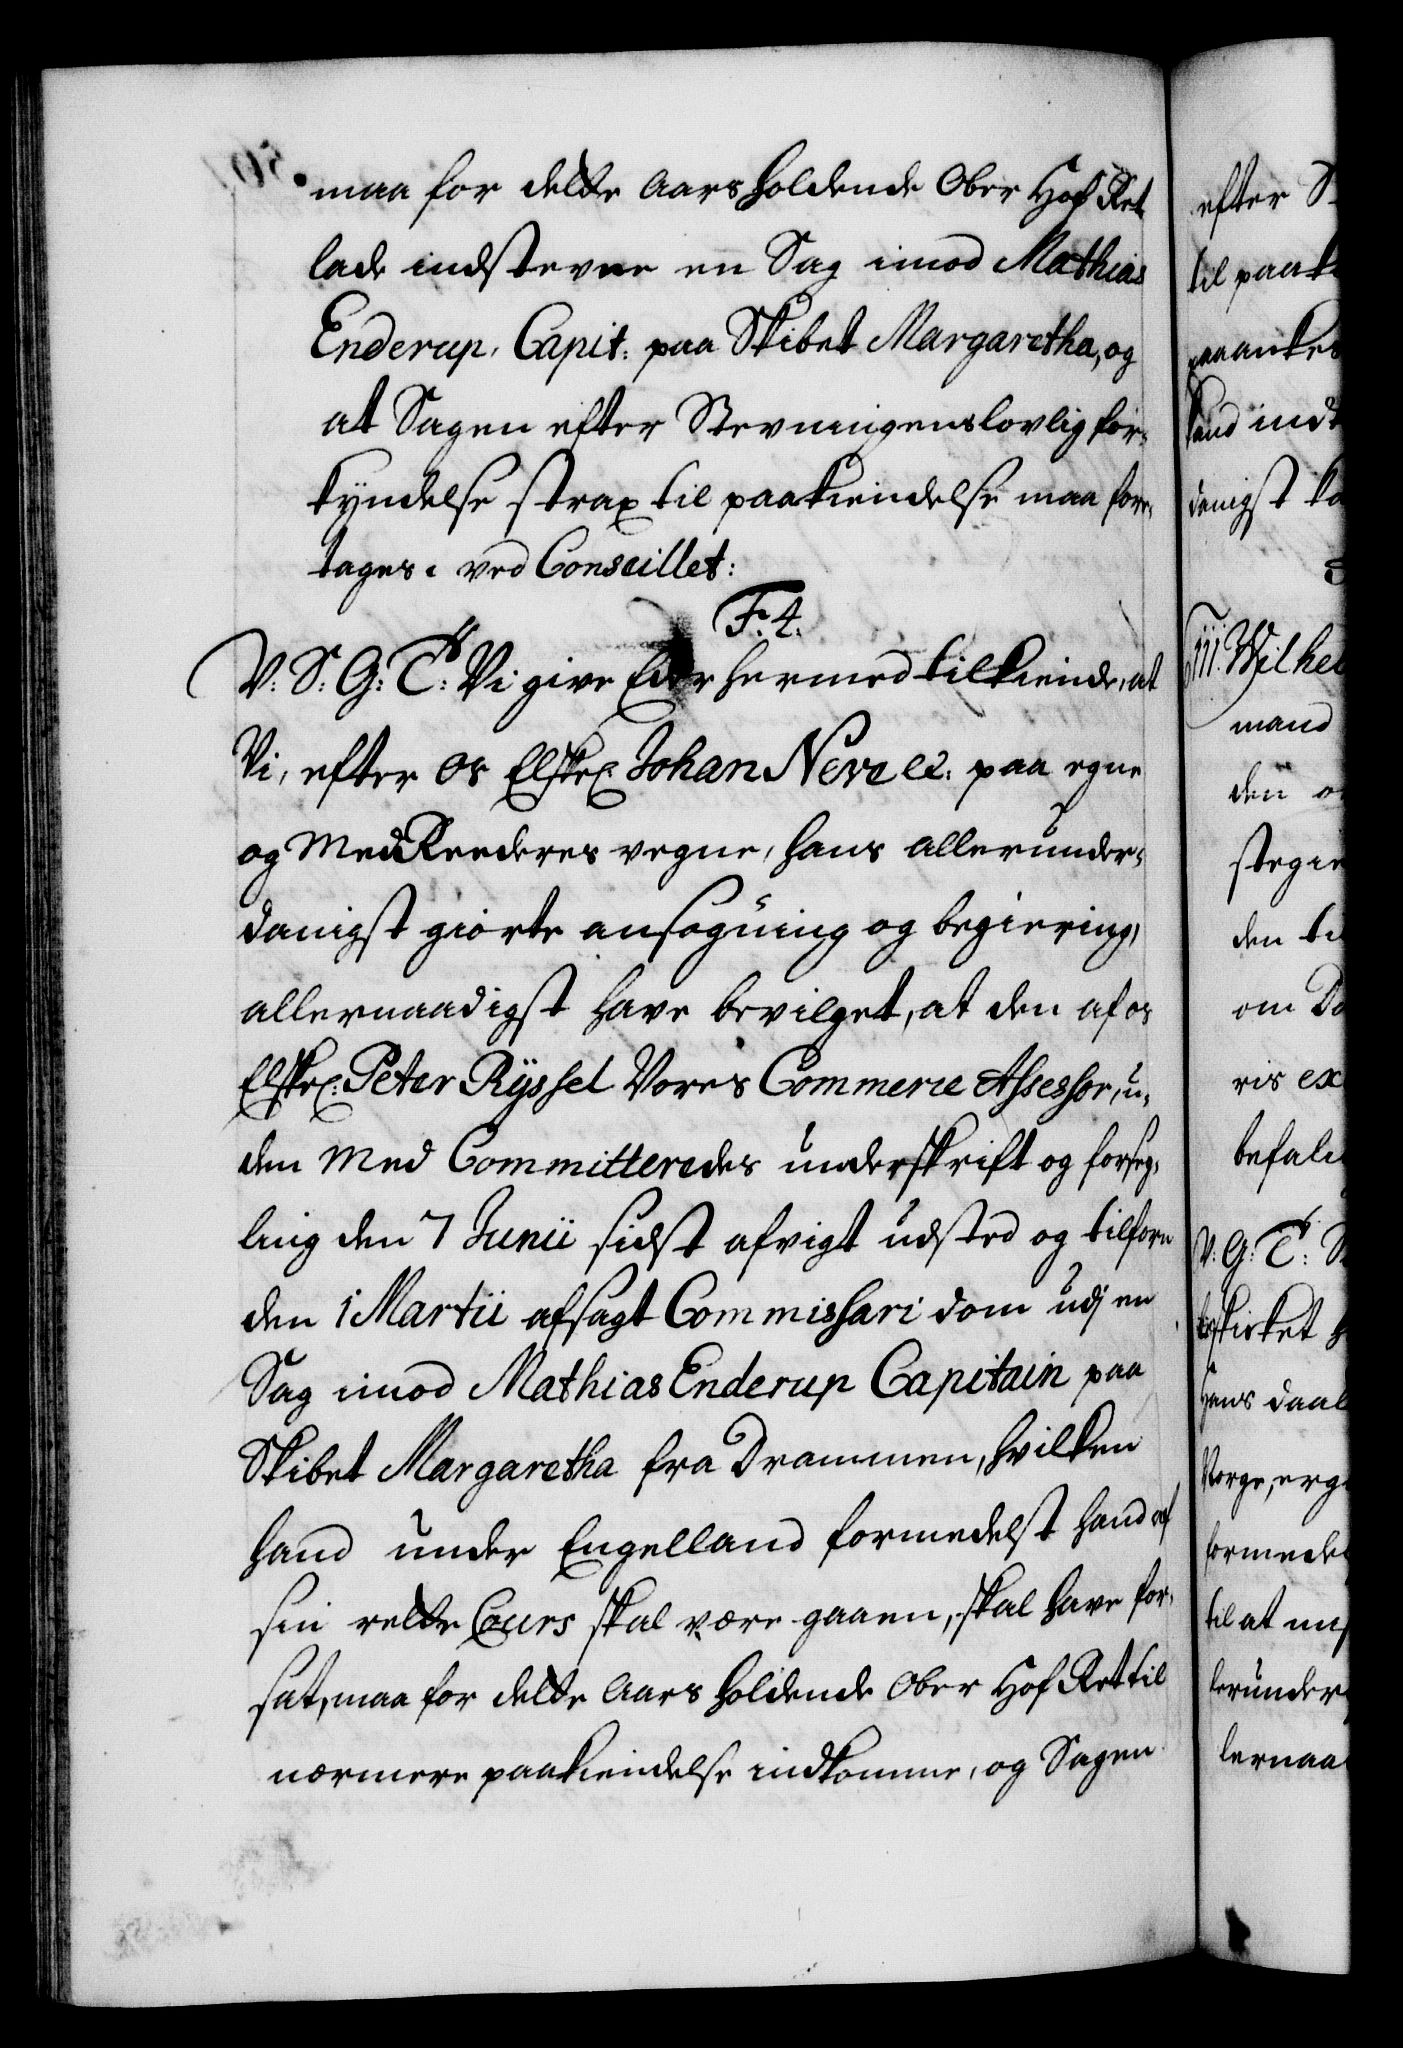 maa for dette Aars holdende Ober Hof Ret
lade indstevne en Sag imod Mathias
Enderup, Capit: paa Skibet Margaretha, og
at Sagen efter Stevningens lovlig for-
kyndelse strax til paakiendelse maa fore-
tages. ved Conseillet:
F. 4.
V: S: G: T: Vi give Eder hermed tilkiende, at
Vi, efter os Elskel: Johan Neve etc: paa egne
og Med Reederes vegne, hans allerunder-
danigst giorte ansøgning og begiering,
allernaadigst have bevilget, at den af os
Elskel: Peter Ryssel Vores Commerce Assessor, u-
den Med Committeredes underskrift og forseg-
ling den 7 Junii sidst afvigt udsted og tilforn
den 1 Martii afsagt Commissari dom udj en
Sag imod Mathias Enderup Capitain paa
Skibet Margaretha fra Drammen, hvilken
hand under Engelland formedelst hand af
sin rette Cours skal være gaaen, skal have for-
sat, maa for dette Aars holdende Ober Hof Ret til
nærmere paakiendelse indkomme, og Sagen
efter
til paak
paaankes
kand indt
danigst
Wilhel
mand
den
stegie
den ti
om
ris ex
befale
V: G: T:
Hans daal
Norge, erg
formede
til at
lerunder
lernaa